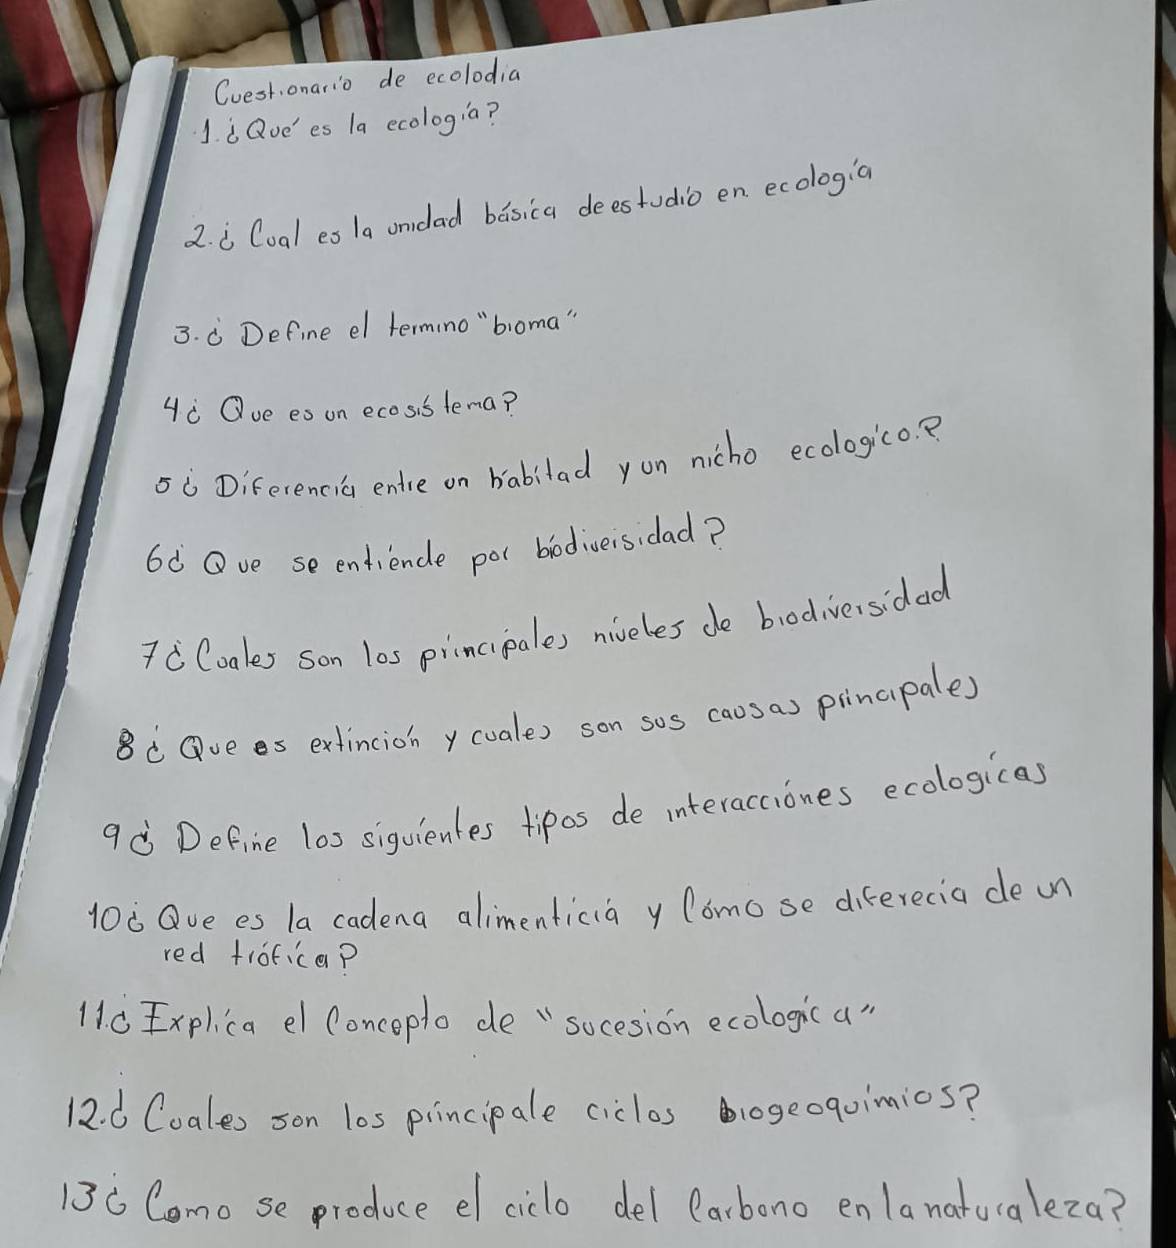 Cuestionario de ecolodia
1. ¿Qué es la ecología?
2. ¿Cual es la unidad básica de estudio en ecología
3. ¿Define el termino "bioma"
4 ¿Que es un ecosistema?
5 ¿Diferencia entre un habitad y un nicho ecologico.?
6 ¿Que se entiende por biodiversidad?
7 ¿Cuales son los principales niveles de biodiversidad
8 ¿Que es extinción y cuales son sus causas principales
9 ¿Define los siguientes tipos de interacciónes ecologicas
10 ¿Que es la cadena alimenticia y Cómo se diferecia de un
red trófica?
11. ¿Explica el Concepto de "sucesión ecologica"
12. ¿Cuales son los principale ciclos biogeoquimios?
13 ¿Como se produce el ciclo del Carbono en la naturaleza?